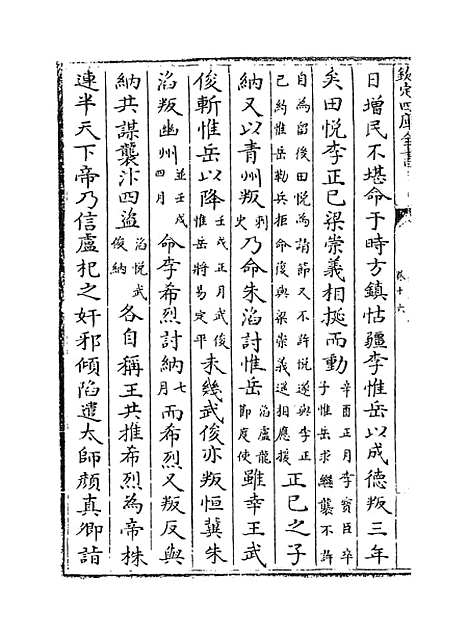 欽定四庫全書
卷十六
日增民不堪命于時方鎮怙彊李惟岳以成德叛三年
矣田悅李正已梁崇義相挻而動辛酉正月李寳臣卒子惟岳求繼襲不許
自為留後田悅為請節又不許悅遂與李正已約惟岳勒兵拒命復與梁崇義遥相應援正已之子
納又以青州叛刺史乃命朱滔討惟岳滔盧龍節度使雖幸王武
俊斬惟岳以降壬戌正月武俊惟岳將易定平未幾武俊亦叛恒冀朱
滔叛幽州並壬戌四月命李希烈討納七月而希烈又叛反與
納共謀襲汴四盜滔悅武俊納各自稱王共推希烈為帝株
連半天下帝乃信盧杞之奸邪傾陷遣太師顏真卿詣